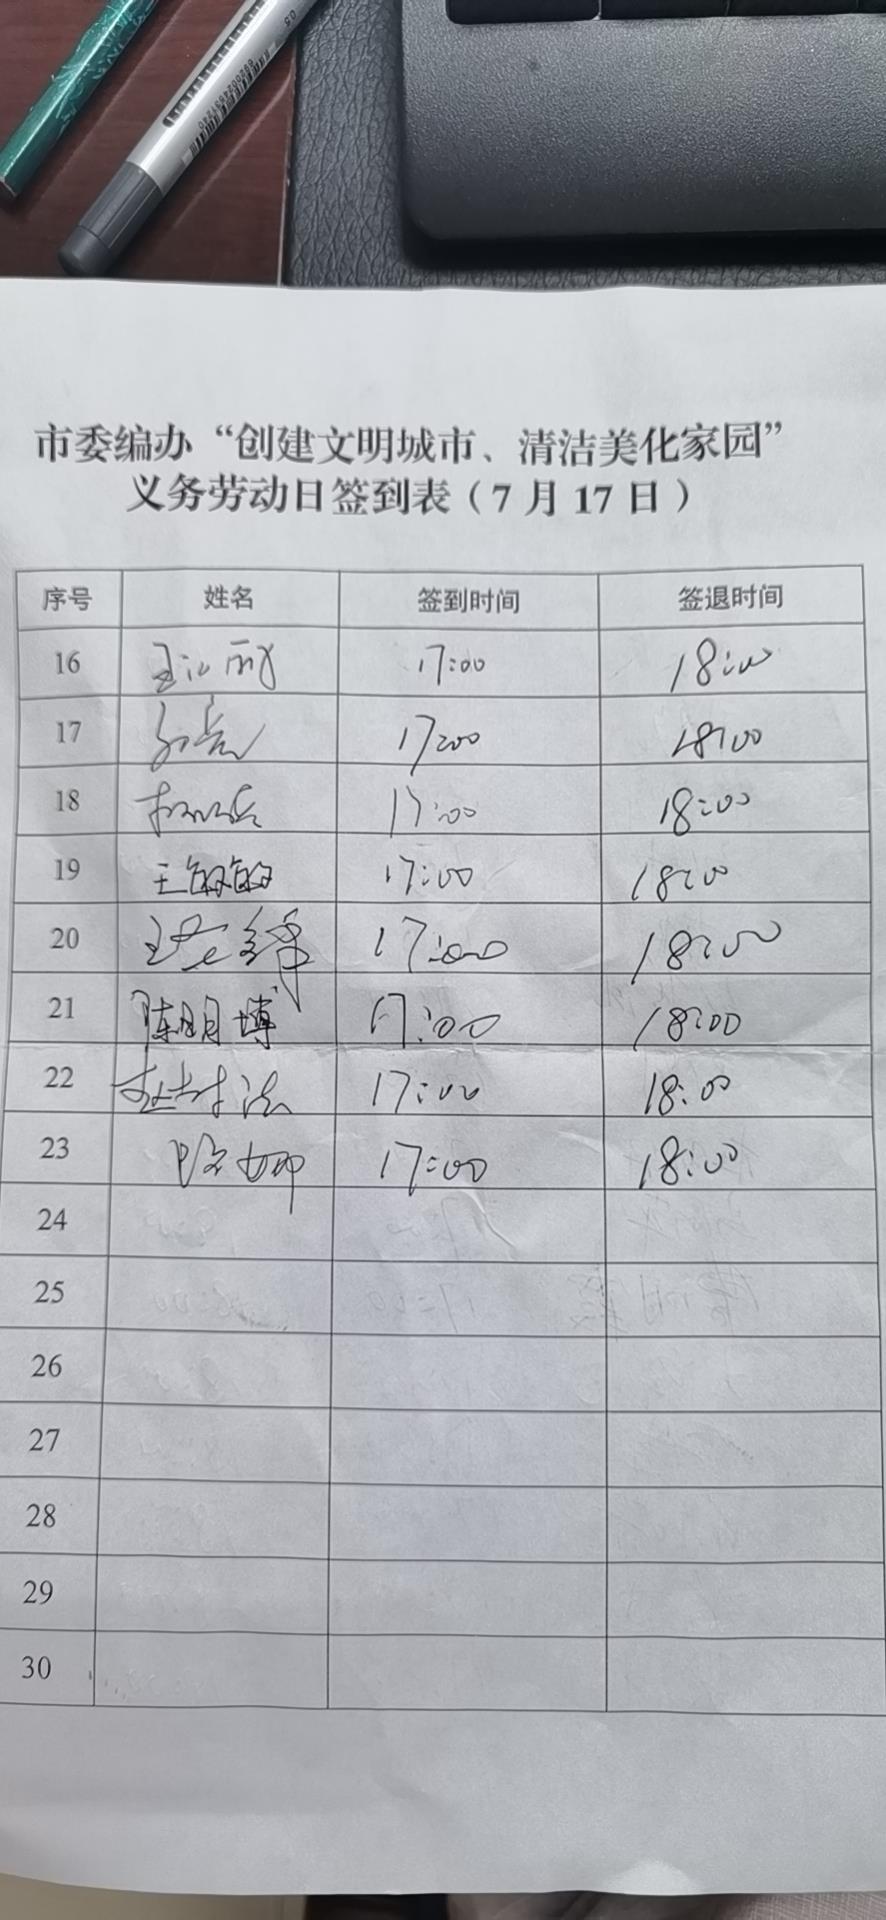 市委编办“创建文明城市、清洁美化家园”
义务劳动日签到表（7月17日）
序号 姓名 签到时间 签退时间
16 17:00 18:00
17 17:00 18:00
18 17:00 18:00
19 王敏敏 17:00 18:00
20 17:00 18:00
21 陈明博 17:00 18:00
22 17:00 18:00
23 17:00 18:00
24
25
26
27
28
29
30